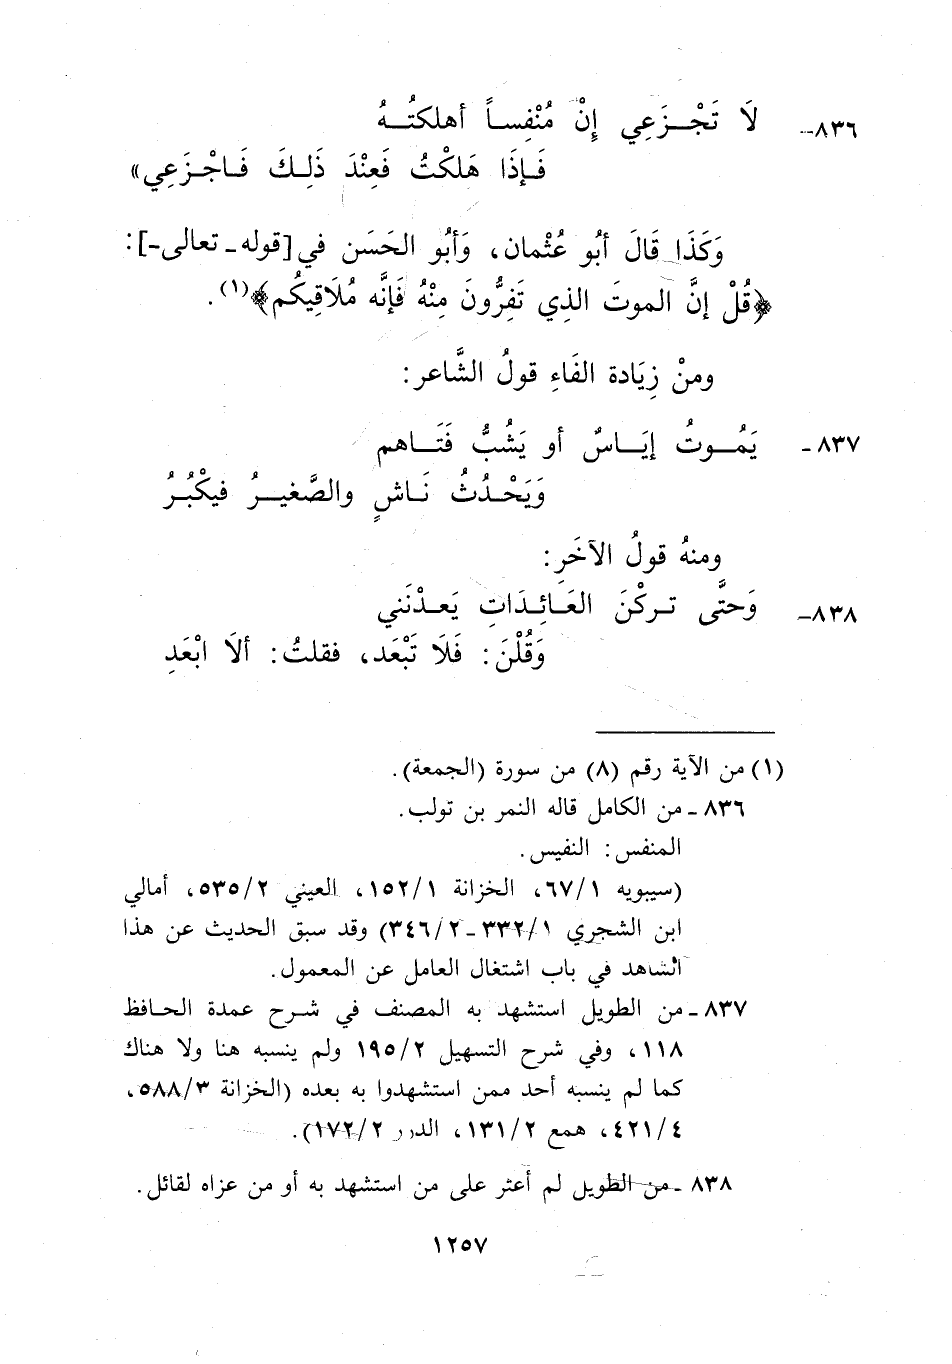 ٨٣٦- لَا تَجْـزَعِي إِنْ مُنْفِسـاً أهلكتُـهُ
فَـإذَا هَلَكْتُ فَعِنْدَ ذَلِـكَ فَـاجْـزَعِي»
وَكَذَا قَالَ أبُو عُثْمان، وَأبُو الحَسَن في [قوله - تعالى -]:
﴿قُلْ إنَّ الموتَ الذِي تَفِرُّونَ مِنْهُ فَإنَّه مُلَاقِيكُم﴾(١).
ومنْ زِيَادة الفَاءِ قولُ الشَّاعر:
٨٣٧- يَمُـوتُ إيَـاسٌ أو يَشُبُّ فَتَـاهم
وَيَحْـدُثُ نَـاشٍ والصَّغيـرُ فيكْبُـرُ
ومنهُ قولُ الآخَرِ:
٨٣٨- وَحتَّى تـركْنَ العَـائِـدَاتِ يَعـدْنَني
وَقُلْنَ: فَلَا تَبْعَد، فقلتُ: ألَا ابْعَدِ
(١) من الآية رقم (٨) من سورة (الجمعة).
٨٣٦ - من الكامل قاله النمر بن تولب.
المنفس: النفيس.
(سيبويه ٦٧/١، الخزانة ١٥٢/١، العيني ٥٣٥/٢، أمالي
ابن الشجري ٣٣٢/١ - ٣٤٦/٢) وقد سبق الحديث عن هذا
الشاهد في باب اشتغال العامل عن المعمول.
٨٣٧ - من الطويل استشهد به المصنف في شرح عمدة الحافظ
١١٨، وفي شرح التسهيل ١٩٥/٢ ولم ينسبه هنا ولا هناك
كما لم ينسبه أحد ممن استشهدوا به بعده (الخزانة ٥٨٨/٣،
٤٢١/٤، همع ١٣١/٢، الدرر ١٧٢/٢).
٨٣٨ - من الطويل لم أعثر على من استشهد به أو من عزاه لقائل.
١٢٥٧